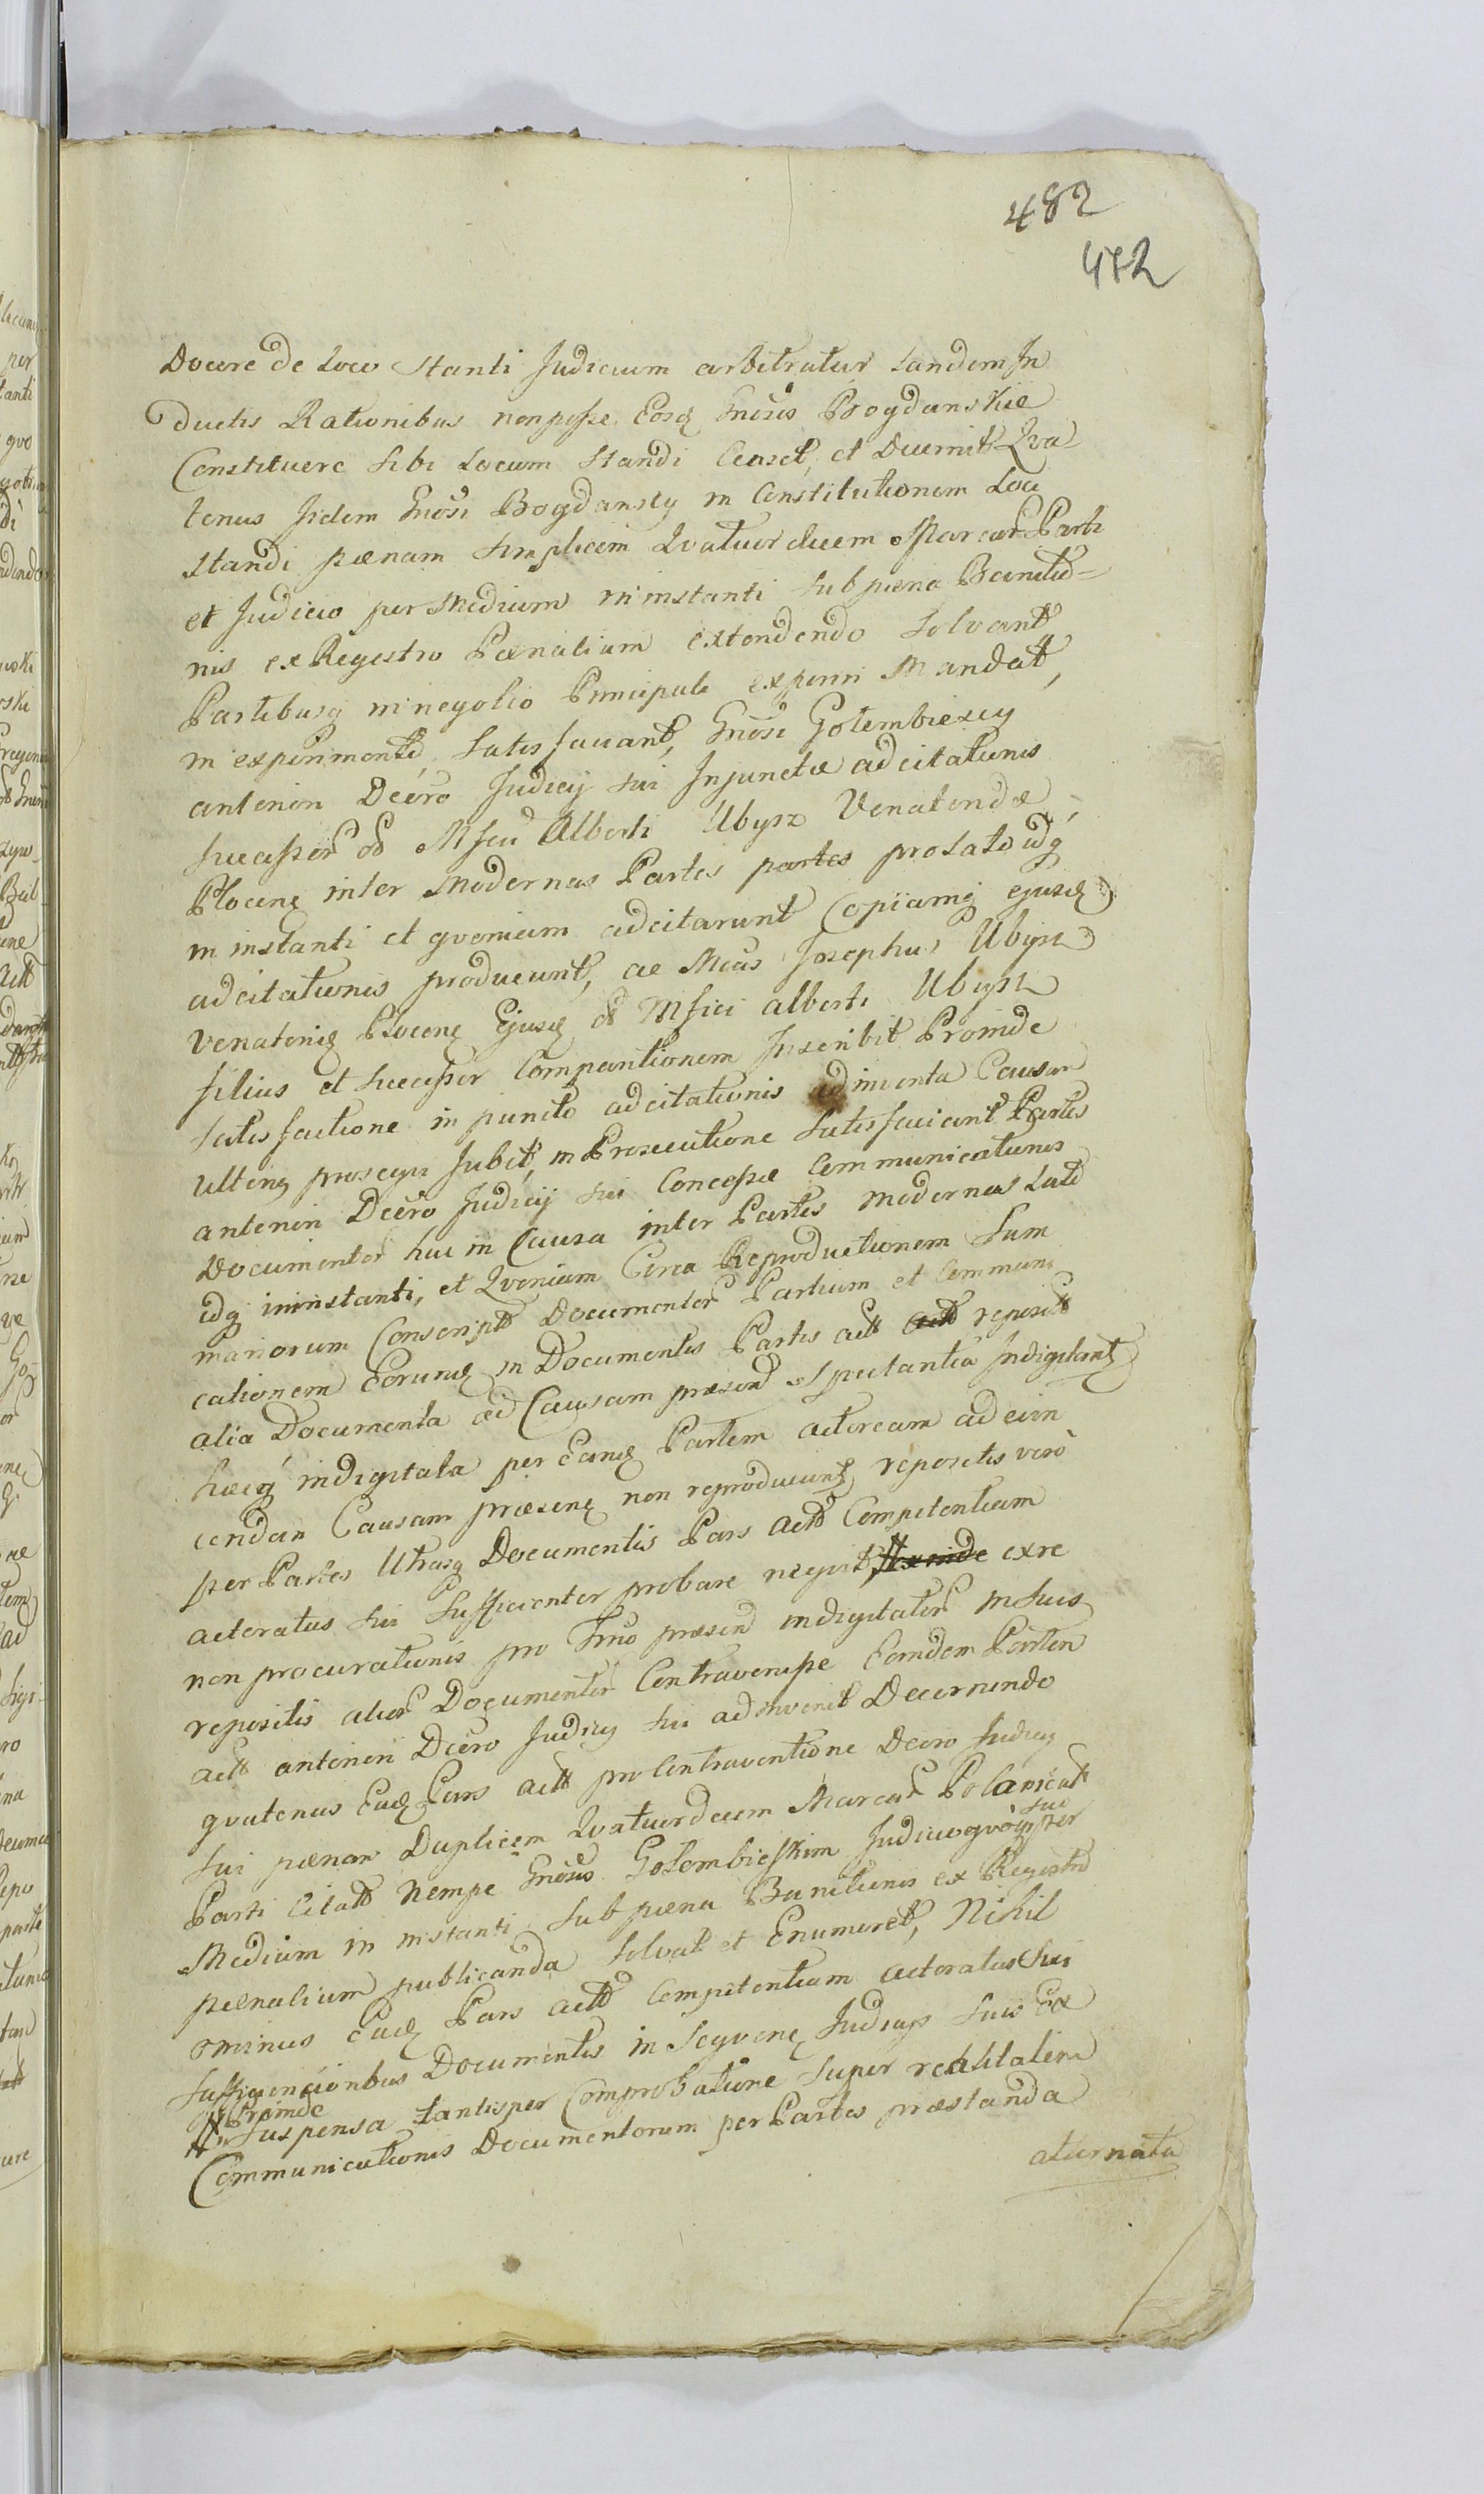 482
482
Docere de Loco Standi Judicium arbitratur tandem In
ductis Rationibus non posse Eosq Gnosos Bogdanskie
Constituere sibi Locum standi Censet, et Decernit Qva
tenus Iidem Gnosi Bogdanscy in Constitutionem Loci
standi pænam simplicem Qvatuordecem Marcar Parti
et Judicio per Medium in instanti sub pæna Bannitio=
nis ex Regestro Pænalium extendendo solvant
Partibusq in negotio Principali experiri Mandat,
in experimento satisfaciant, Gnosi Gołembiescy
anteriori Decro Judicy sui Injunctæ adcitationis
successor ol Mfici Alberti Ubysz Venatoridæ
Plocens inter Modernas Partes partes prolato idq
in instanti et qvoniam adcitarunt Copiamq ejusd
adcitationis producunt, ac Mcus Josephus Ubysz
Venatorid Plocens Ejusd ol Mfici Alberti Ubysz
filius et successor Comparitionem Inscribit Proinde
satisfactione in puncto adcitationis adinventa Causam
ulterius proseqvi Jubet, in Prosecutione satisfaciant Partes
anteriori Decro Judicij sui Concessæ Communicationis
Documentor hac in Causa inter Partes modernas Lato
idq in instanti, et Qvoniam Circa Reproductionem Sum
mariorum Conscript Documentor Partium et Communi
cationem Eorund in Documentis Partis act act reposit
alia Documenta ad Causam præsend spectantia Indigitant
hæcq indigitata per Eand Partem actoream ad evin
cendam Causam præsend non reproducunt repositis verò
per Partes Utrasq Documentis Pars act Competentiam
actoratus sui sufficienter probare neqvit, Exinde ex re
non procurationis pro Tmno præsend indigitator in suis
repositis alior Documentor Contravenisse Eamdem Partem
act anteriori Decro Judicy sui adinvenit Decernendo
qvatenus Ead Pars act pro Contraventione Decro Judicy
sui pænam Duplicem Qvatuordecem Marcar Polonical
Parti Citat Nempe Gnosis Gołembieskim Judicioqvò suo per
Medium in instanti sub pæna Bannitionis ex Regestro
pænalium publicanda solvat et Enumeret, Nihil
ominus Ead Pars act Competentiam actoratus sui
sufficiencioribus Documentis in seqvend Judicijs suis Ex
Proinde
suspensa tantisper Comprobatione super realitatem
Communicationis Documentorum per Partes præstanda
aturnata